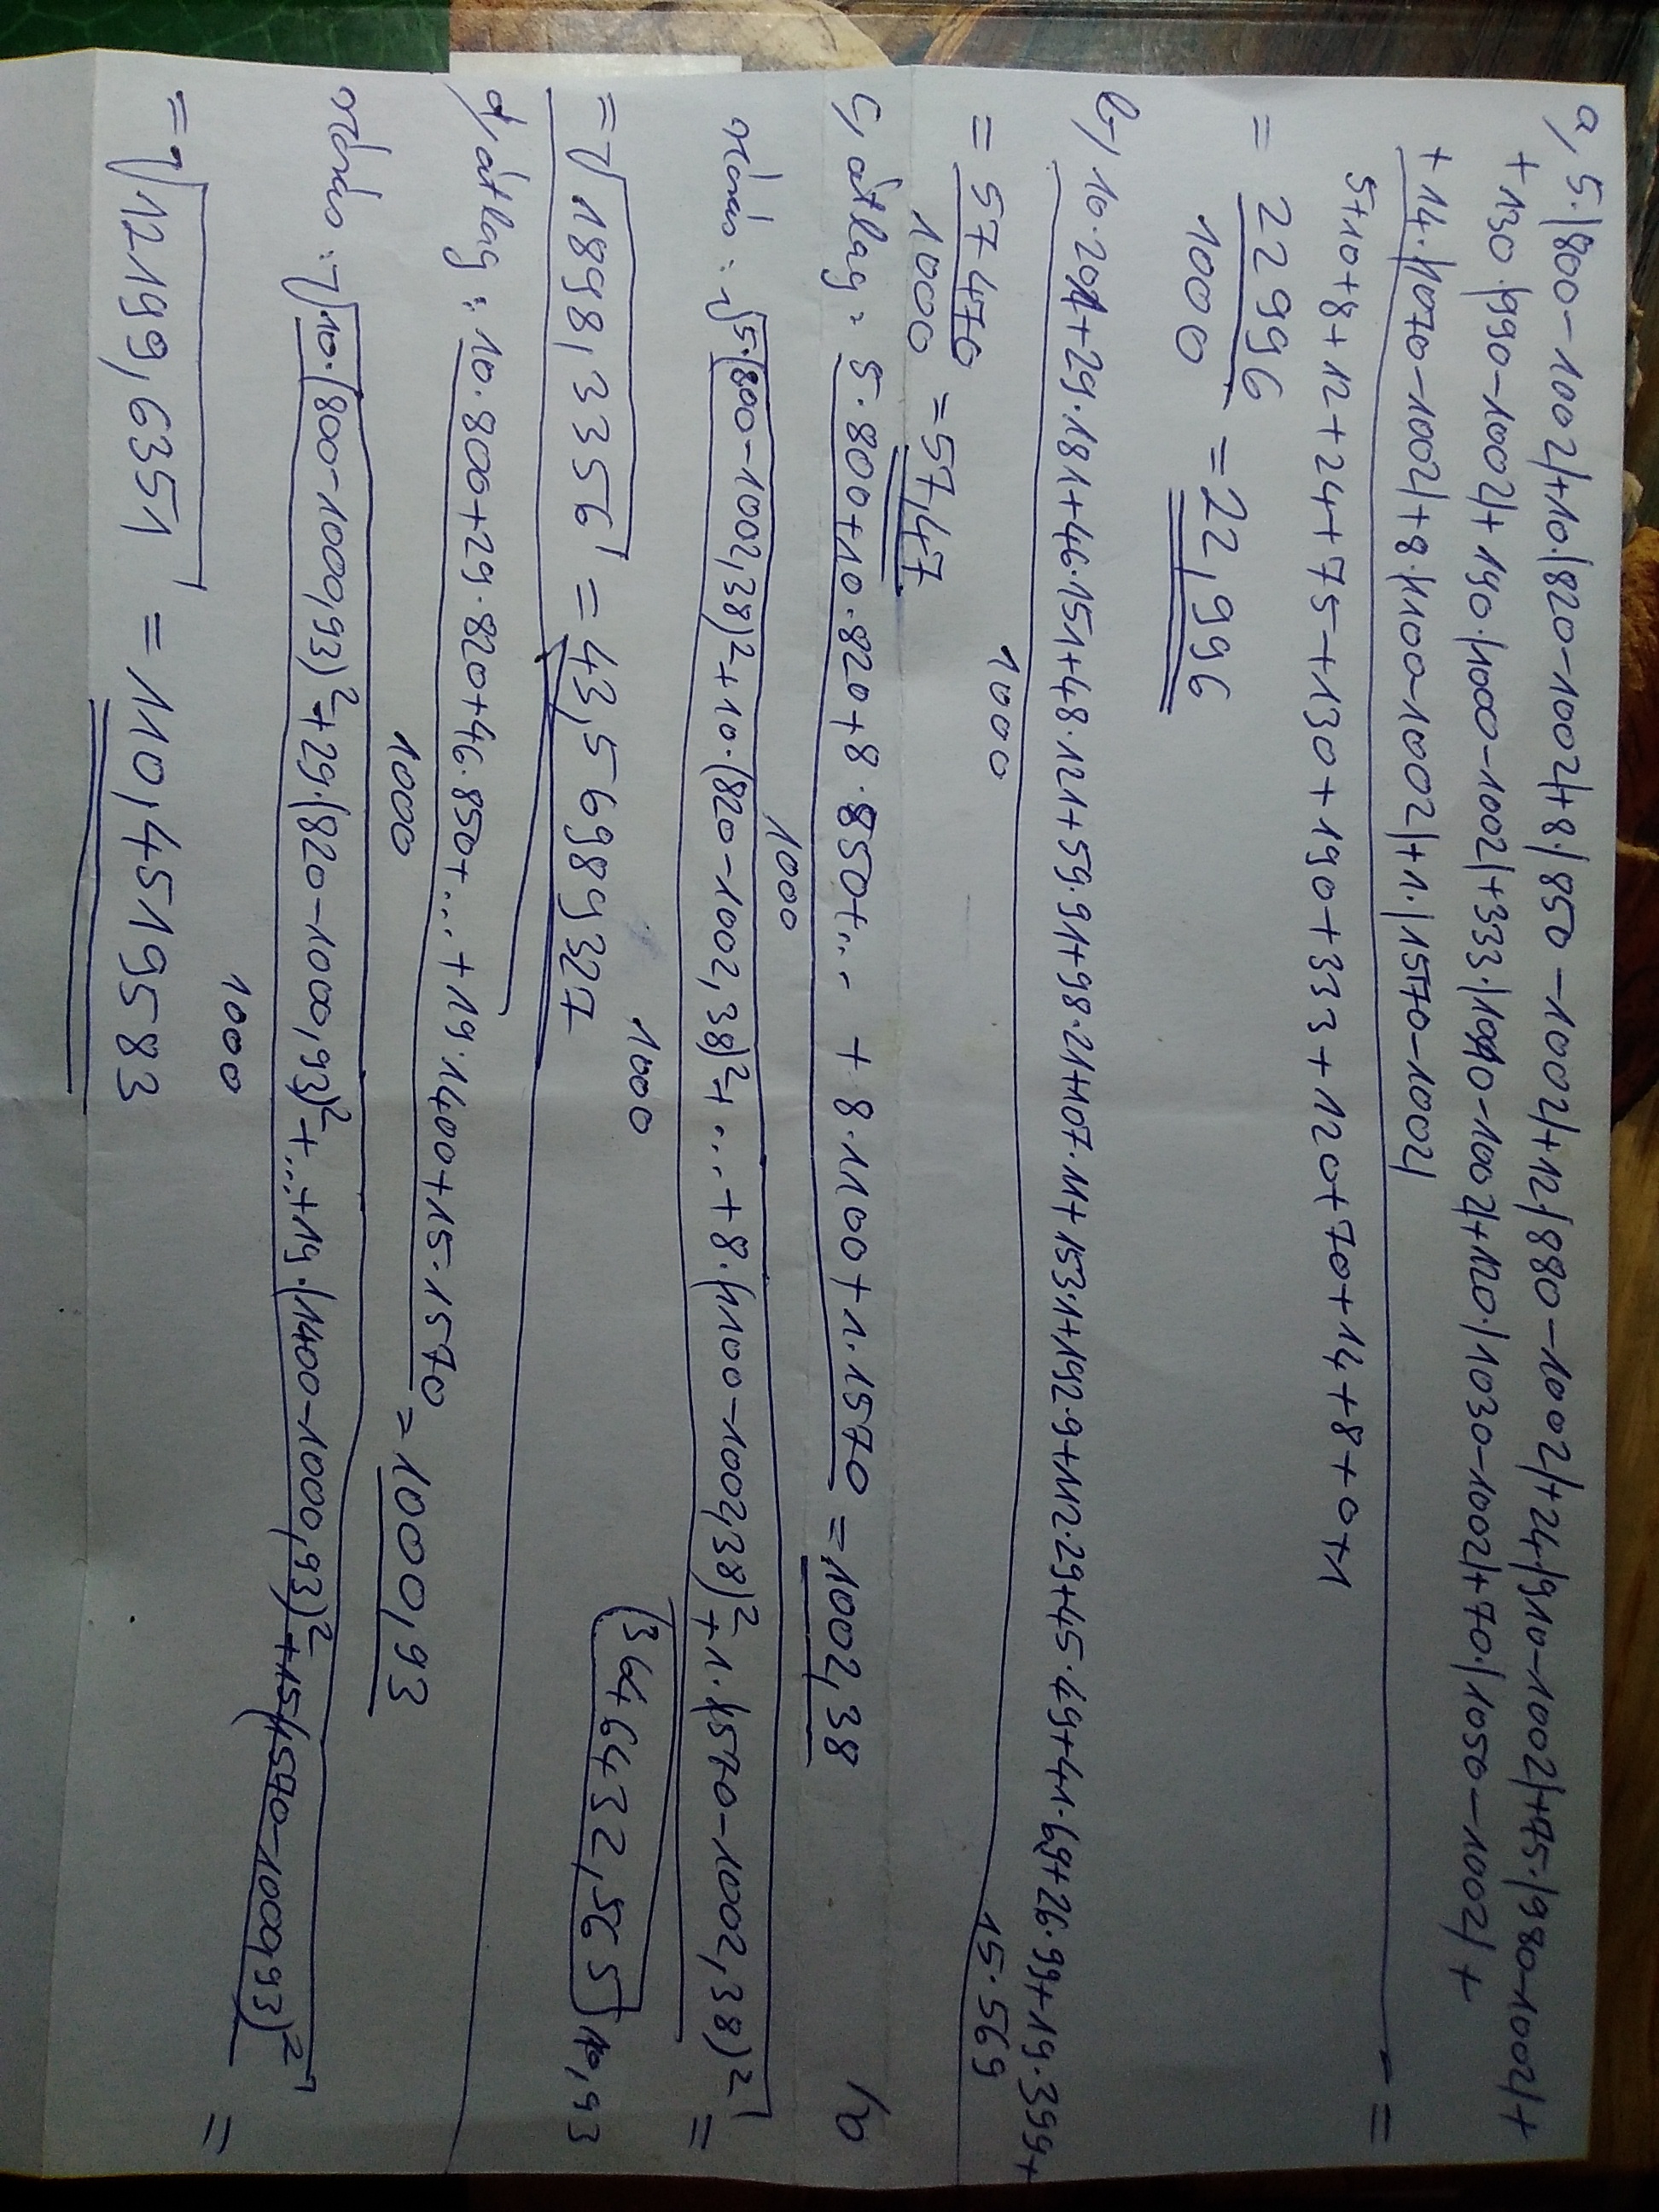 a, 5·|800-1002|+10·|820-1002|+8·|850-1002|+12·|880-1002|+24·|910-1002|+75·|980-1002|+
+130·|990-1002|+190·|1000-1002|+333·|1010-1002|+120·|1030-1002|+70·|1050-1002|+
+14·|1070-1002|+8·|1100-1002|+1·|1570-1002|
=
5+10+8+12+24+75+130+190+333+120+70+14+8+0+1
= 22996 = 22,996
1000
b, 10·201+29·181+46·151+48·121+59·91+98·21+107·11+153·1+192·9+112·29+45·49+41·69+26·99+19·399+
15·569
1000
= 57470 = 57,47
1000
c, átlag = 5·800+10·820+8·850+... + 8·1100+1·1570 = 1002,38
1000
szórás: √5·(800-1002,38)²+10·(820-1002,38)²+...+8·(1100-1002,38)²+1·(1570-1002,38)² =
1000
(3446432,565)
= √1898,3356 = 43,56989327
d, átlag: 10·800+29·820+46·850+...+19·1400+15·1570 = 1000,93
1000
szórás: √10·(800-1000,93)²+29·(820-1000,93)²+...+19·(1400-1000,93)²+15(1570-1000,93)² =
1000
= √12199,6351 = 110,4519583